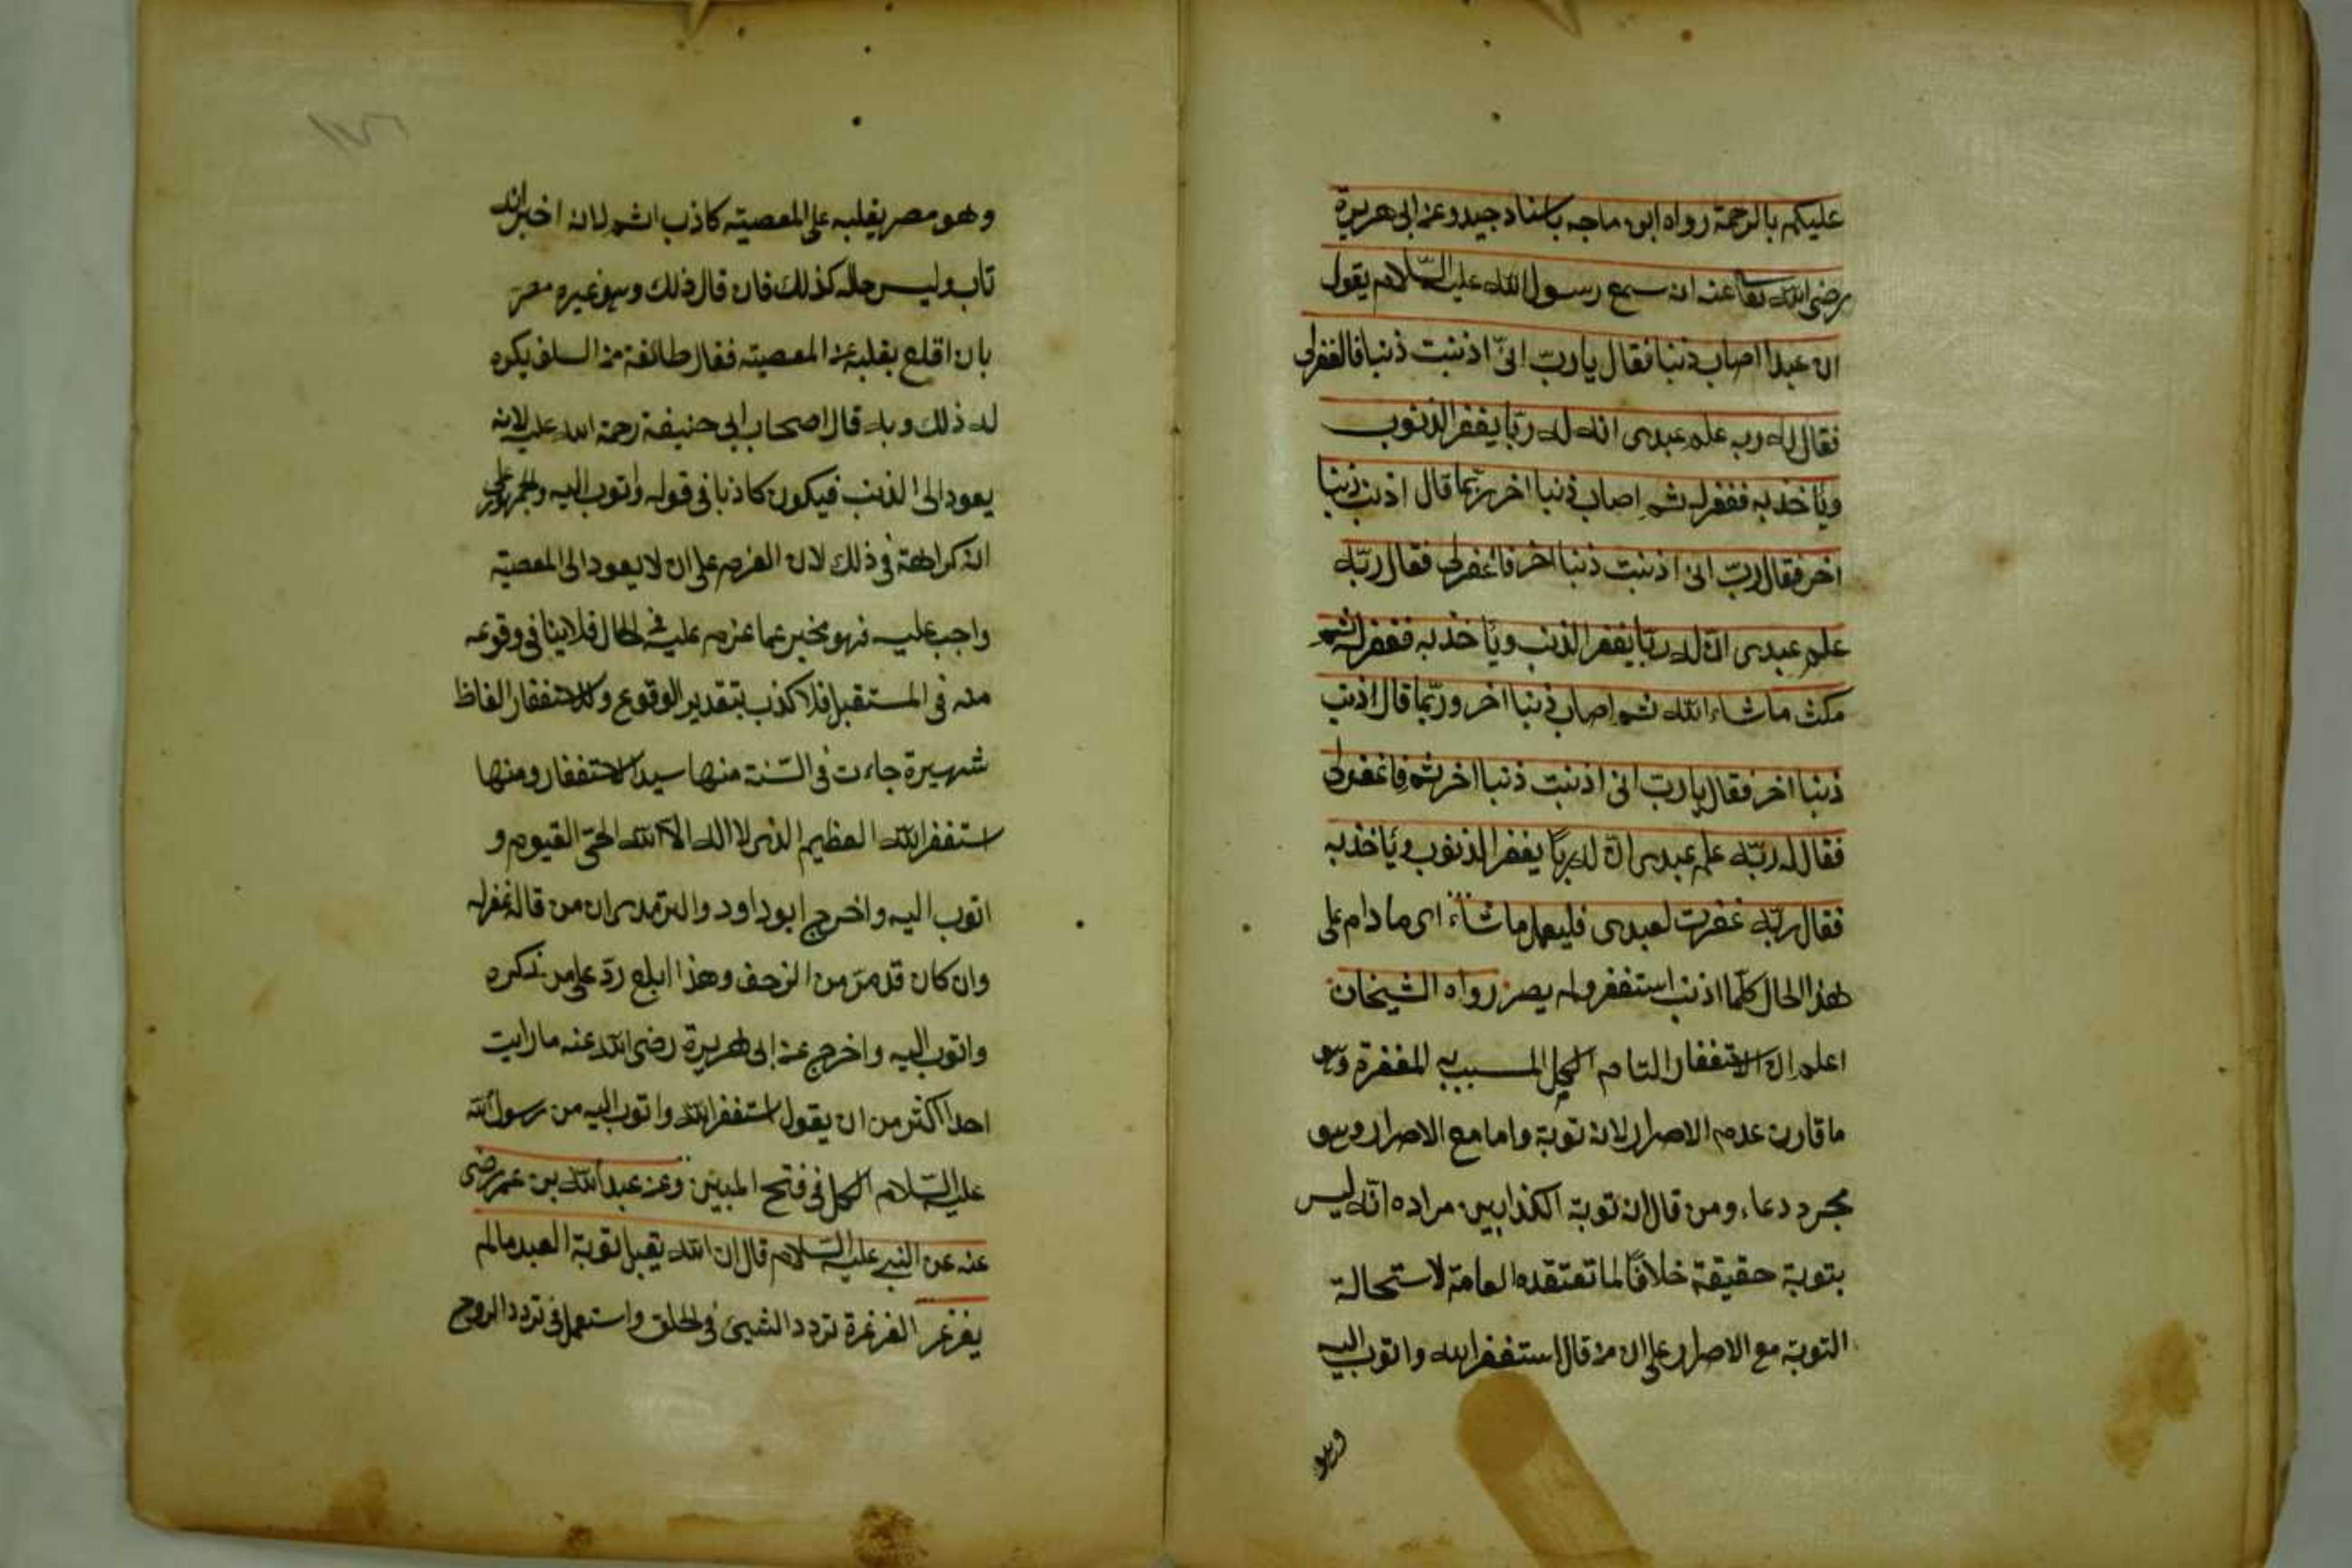 عليكم بالرحمة رواه ابن ماجه باسناد جيد وعن ابى هريرة
رضى الله تعا عنه انه سمع رسول الله عليه السّلام يقول
ان عبدا اصاب ذنبا فقال يا ربّ انىّ اذنبت ذنبا فاغفرلى
فقال له ربه علم عبدى ان له ربّا يغفر الذنوب
ويأخذ به فغفر له ثم اصاب ذنبا اخر ربّما قال اذنب ذنبا
اخر فقال ربّ انى اذنبت ذنبا اخر فاغفرلى فقال ربّه
علم عبدى انّ له ربّا يغفر الذنب ويأخذ به فغفر له ثم
مكث ما شاء الله ثم اصاب ذنبا اخر وربّما قال اذنب
ذنبا اخر فقال يا ربّ انى اذنبت ذنبا اخر ثم فاغفرلى
فقال له ربّه علم عبدى انّ له ربّا يغفر الذنوب ويأخذ به
فقال ربّه غفرت لعبدى فليعمل ما شاء اى ما دام على
هذا الحال كلّما اذنب استغفر ولم يصر رواه الشيخان
اعلم ان الاستغفار التام الكل المسبب به المغفرة وهو
ما قارن عدم الاصرار لانه توبة واما مع الاصرار وهو
مجرد دعاء ومن قال انه توبة الكذابين مراده انّه ليس
بتوبة حقيقة خلافًا لما تعتقده العامة لاستحالة
التوبة مع الاصرار على ان من قال استغفر الله واتوب اليه
وهو
وهو مصر بقلبه على المعصية كاذب اثم لانه اخبر انه
تاب وليس حاله كذلك فان قال ذلك وهو غيره مصر
بان اقلع بقلبه عن المعصية فقال طائفة من السلف يكره
له ذلك وبه قال اصحاب ابى حنيفة رحمة الله عليه لانه
يعود الى الذنب فيكون كاذبا فى قوله واتوب اليه والجمهور على
ان كراهة فى ذلك لان العزم على ان لا يعود الى المعصية
واجب عليه فهو مخبر عما عزم عليه فى الحال فلا ينافى وقوعه
منه فى المستقبل فلا كذب بتقدير الوقوع وللاستغفار الفاظ
شهيرة جاءت فى السّنة منها سيد الاستغفار ومنها
استغفر الله العظيم الذى لا اله الّا الله الحىّ القيوم و
اتوب اليه واخرج ابو داود والترمدى ان من قاله غفر له
وان كان قد مرّ من الزحف وهذا ابلغ ردّ على من نكره
واتوب اليه واخرج عن ابى هريرة رضى الله عنه ما رايت
احدا اكثر من ان يقول استغفر الله واتوب اليه من رسول الله
عليه السّلام الكل فى فتح المبين وعن عبد الله بن عمر رضى
عنه عن النبى عليه السّلام قال ان الله يقبل توبة العبد مالم
يغرغر الغرغرة تردد الشيئ فى الحلق واستعمل فى تردد الروح